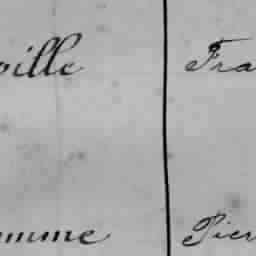 oille Fra
mme Pier